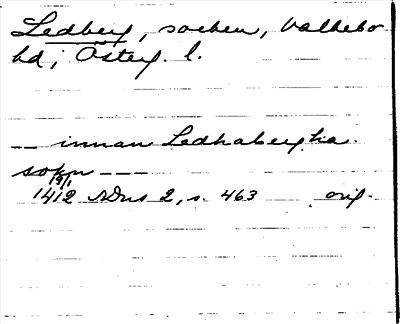 Ledberg, socken, Valkebo
hd, Österg. l.
— innan Ledhabergha
sokn — — —
19/1
1412 SDns 2, s. 463 orig.